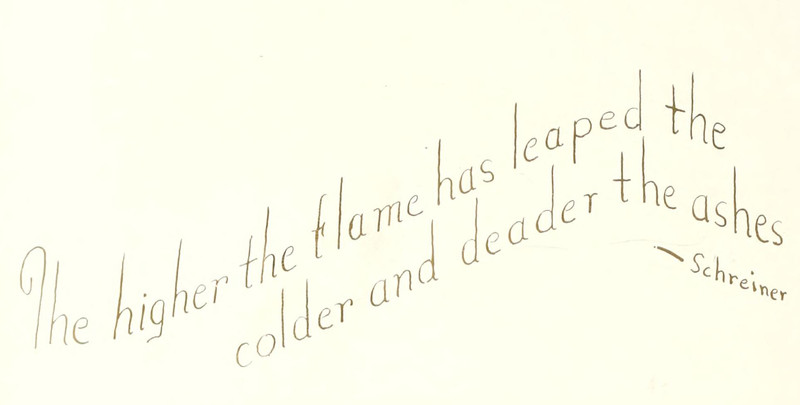 The higher the flame has leaped the
colder and deader the ashes
— Schreiner